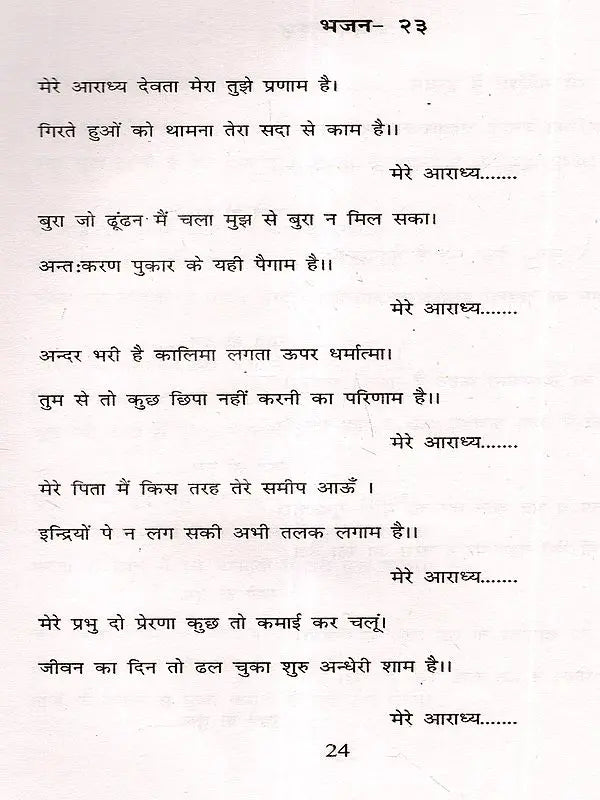 भजन- २३
मेरे आराध्य देवता मेरा तुझे प्रणाम है।
गिरते हुओं को थामना तेरा सदा से काम है।।
मेरे आराध्य.......
बुरा जो ढूंढन मैं चला मुझ से बुरा न मिल सका।
अन्तःकरण पुकार के यही पैगाम है।।
मेरे आराध्य.......
अन्दर भरी है कालिमा लगता ऊपर धर्मात्मा।
तुम से तो कुछ छिपा नहीं करनी का परिणाम है।।
मेरे आराध्य.......
मेरे पिता मैं किस तरह तेरे समीप आऊँ ।
इन्द्रियों पे न लग सकी अभी तलक लगाम है।।
मेरे आराध्य.......
मेरे प्रभु दो प्रेरणा कुछ तो कमाई कर चलूं।
जीवन का दिन तो ढल चुका शुरु अन्धेरी शाम है।।
मेरे आराध्य.......
24